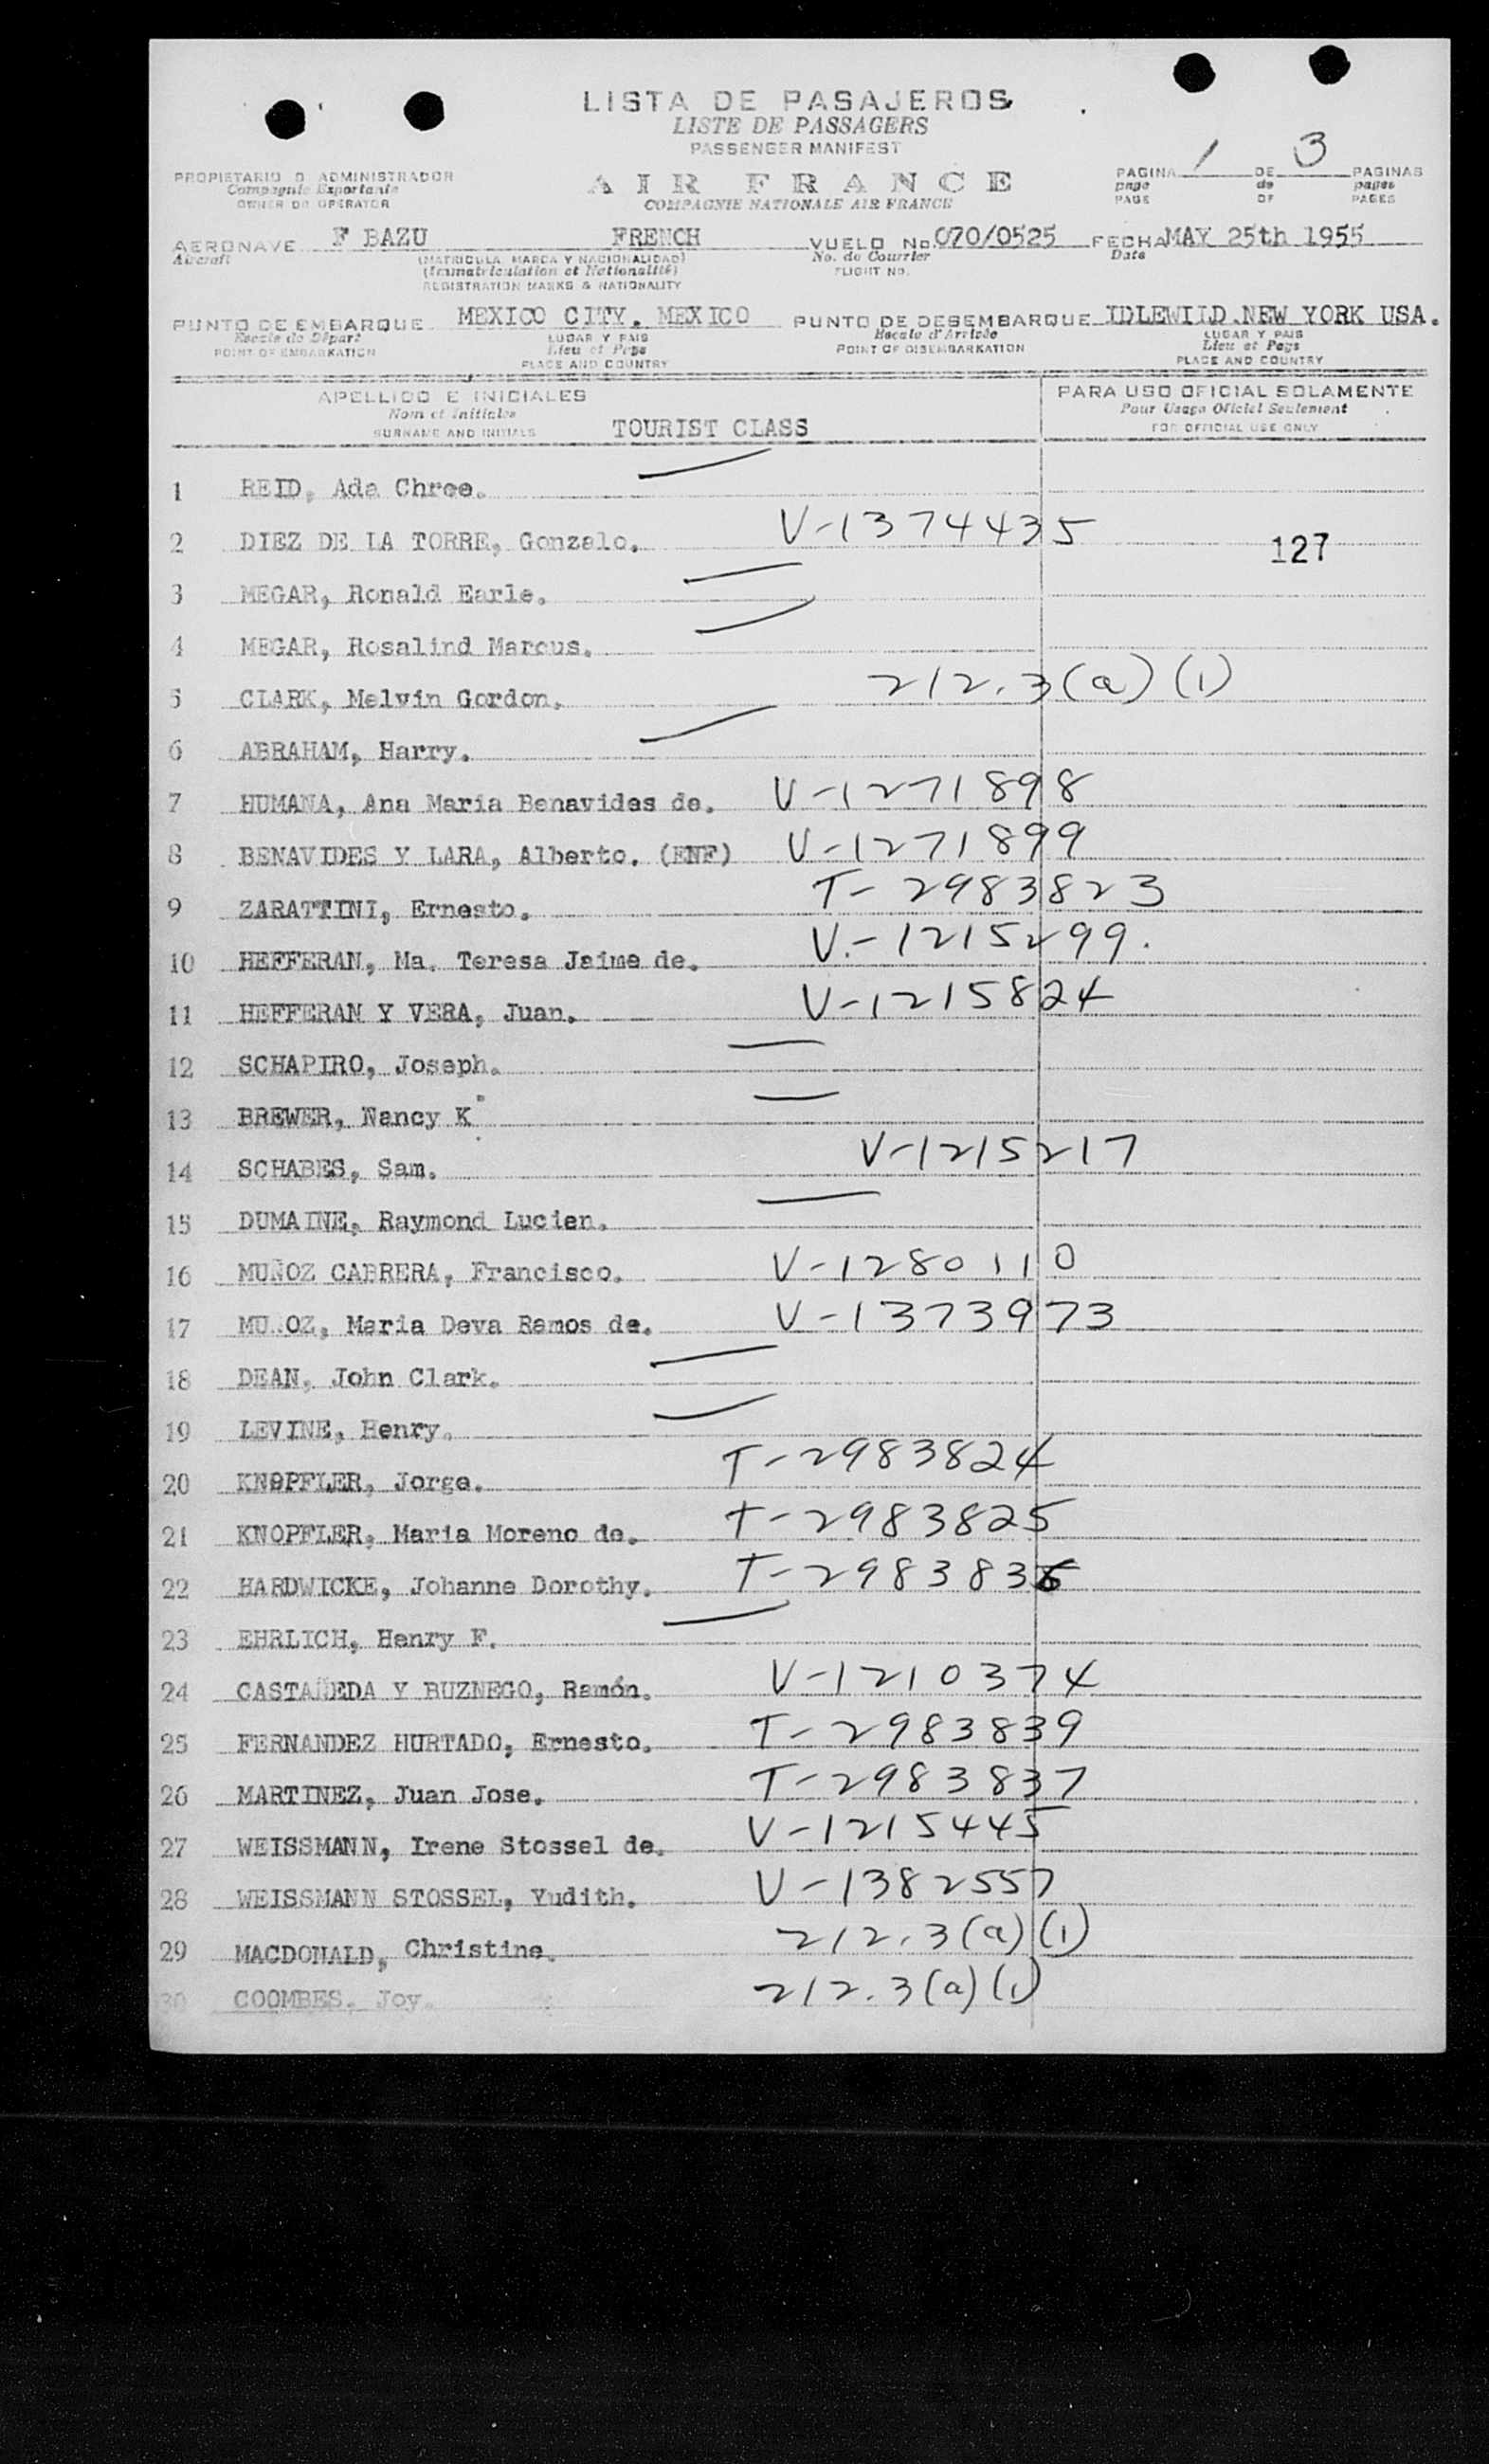 LISTA DE PASAJEROS
LISTE DE PASSAGERS
PASSENGER MANIFEST
PROPIETARIO O ADMINISTRADOR
Compagnie Exportante
OWNER OR OPERATOR
AIR FRANCE
COMPAGNIE NATIONALE AIR FRANCE
PAGINA 1 DE 3 PAGINAS
page de pages
PAGE OF PAGES
AERONAVE F BAZU FRENCH VUELO No. 070/0525 FECHA MAY 25th 1955
Aircraft (MATRICULA, MARCA Y NACIONALIDAD) No. de Courrier Date
(Immatriculation et Nationalité) FLIGHT NO.
REGISTRATION MARKS & NATIONALITY
PUNTO DE EMBARQUE MEXICO CITY, MEXICO PUNTO DE DESEMBARQUE IDLEWILD NEW YORK USA.
Escale de Départ LUGAR Y PAIS Escale d'Arrivée LUGAR Y PAIS
POINT OF EMBARKATION Lieu et Pays POINT OF DISEMBARKATION Lieu et Pays
PLACE AND COUNTRY PLACE AND COUNTRY
APELLIDO E INICIALES PARA USO OFICIAL SOLAMENTE
Nom et Initiales Pour Usage Officiel Seulement
SURNAME AND INITIALS TOURIST CLASS FOR OFFICIAL USE ONLY
1 REID, Ada Chree.
2 DIEZ DE LA TORRE, Gonzalo. V-1374435 127
3 MEGAR, Ronald Earle.
4 MEGAR, Rosalind Marcus.
5 CLARK, Melvin Gordon. 212.3(a)(1)
6 ABRAHAM, Harry.
7 HUMANA, Ana Maria Benavides de. V-1271898
8 BENAVIDES Y LARA, Alberto. (ENF) V-1271899
9 ZARATTINI, Ernesto. T-2983823
10 HEFFERAN, Ma. Teresa Jaime de. V.-1215299.
11 HEFFERAN Y VERA, Juan. V-1215824
12 SCHAPIRO, Joseph.
13 BREWER, Nancy K
14 SCHABES, Sam. V-1215217
15 DUMAINE, Raymond Lucien.
16 MUÑOZ CABRERA, Francisco. V-1280110
17 MU.OZ, Maria Deva Ramos de. V-1373973
18 DEAN, John Clark.
19 LEVINE, Henry.
20 KNOPFLER, Jorge. T-2983824
21 KNOPFLER, Maria Moreno de. T-2983825
22 HARDWICKE, Johanne Dorothy. T-2983836
23 EHRLICH, Henry F.
24 CASTAÑEDA Y BUZNEGO, Ramón. V-1210374
25 FERNANDEZ HURTADO, Ernesto. T-2983839
26 MARTINEZ, Juan Jose. T-2983837
27 WEISSMANN, Irene Stossel de. V-1215445
28 WEISSMANN STOSSEL, Yudith. V-1382557
29 MACDONALD, Christine. 212.3(a)(1)
30 COOMBES, Joy. 212.3(a)(1)